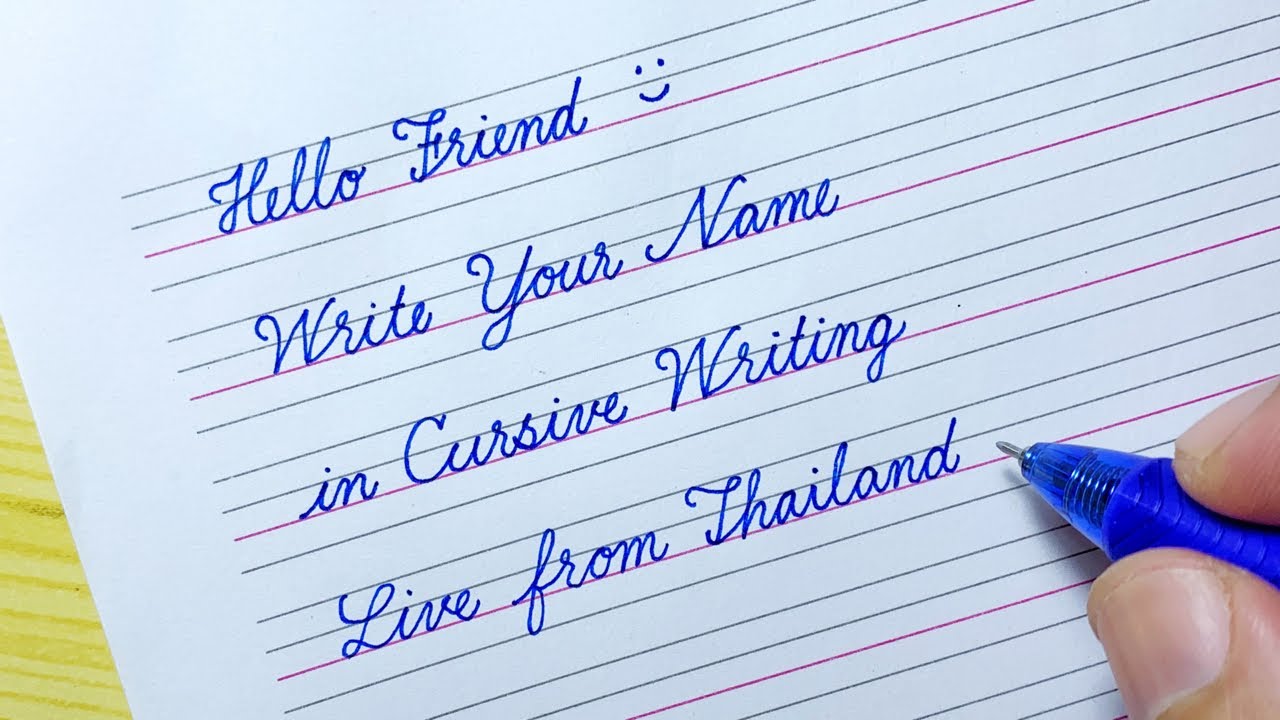 Hello Friend :)
Write Your Name
in Cursive Writing
Live from Thailand